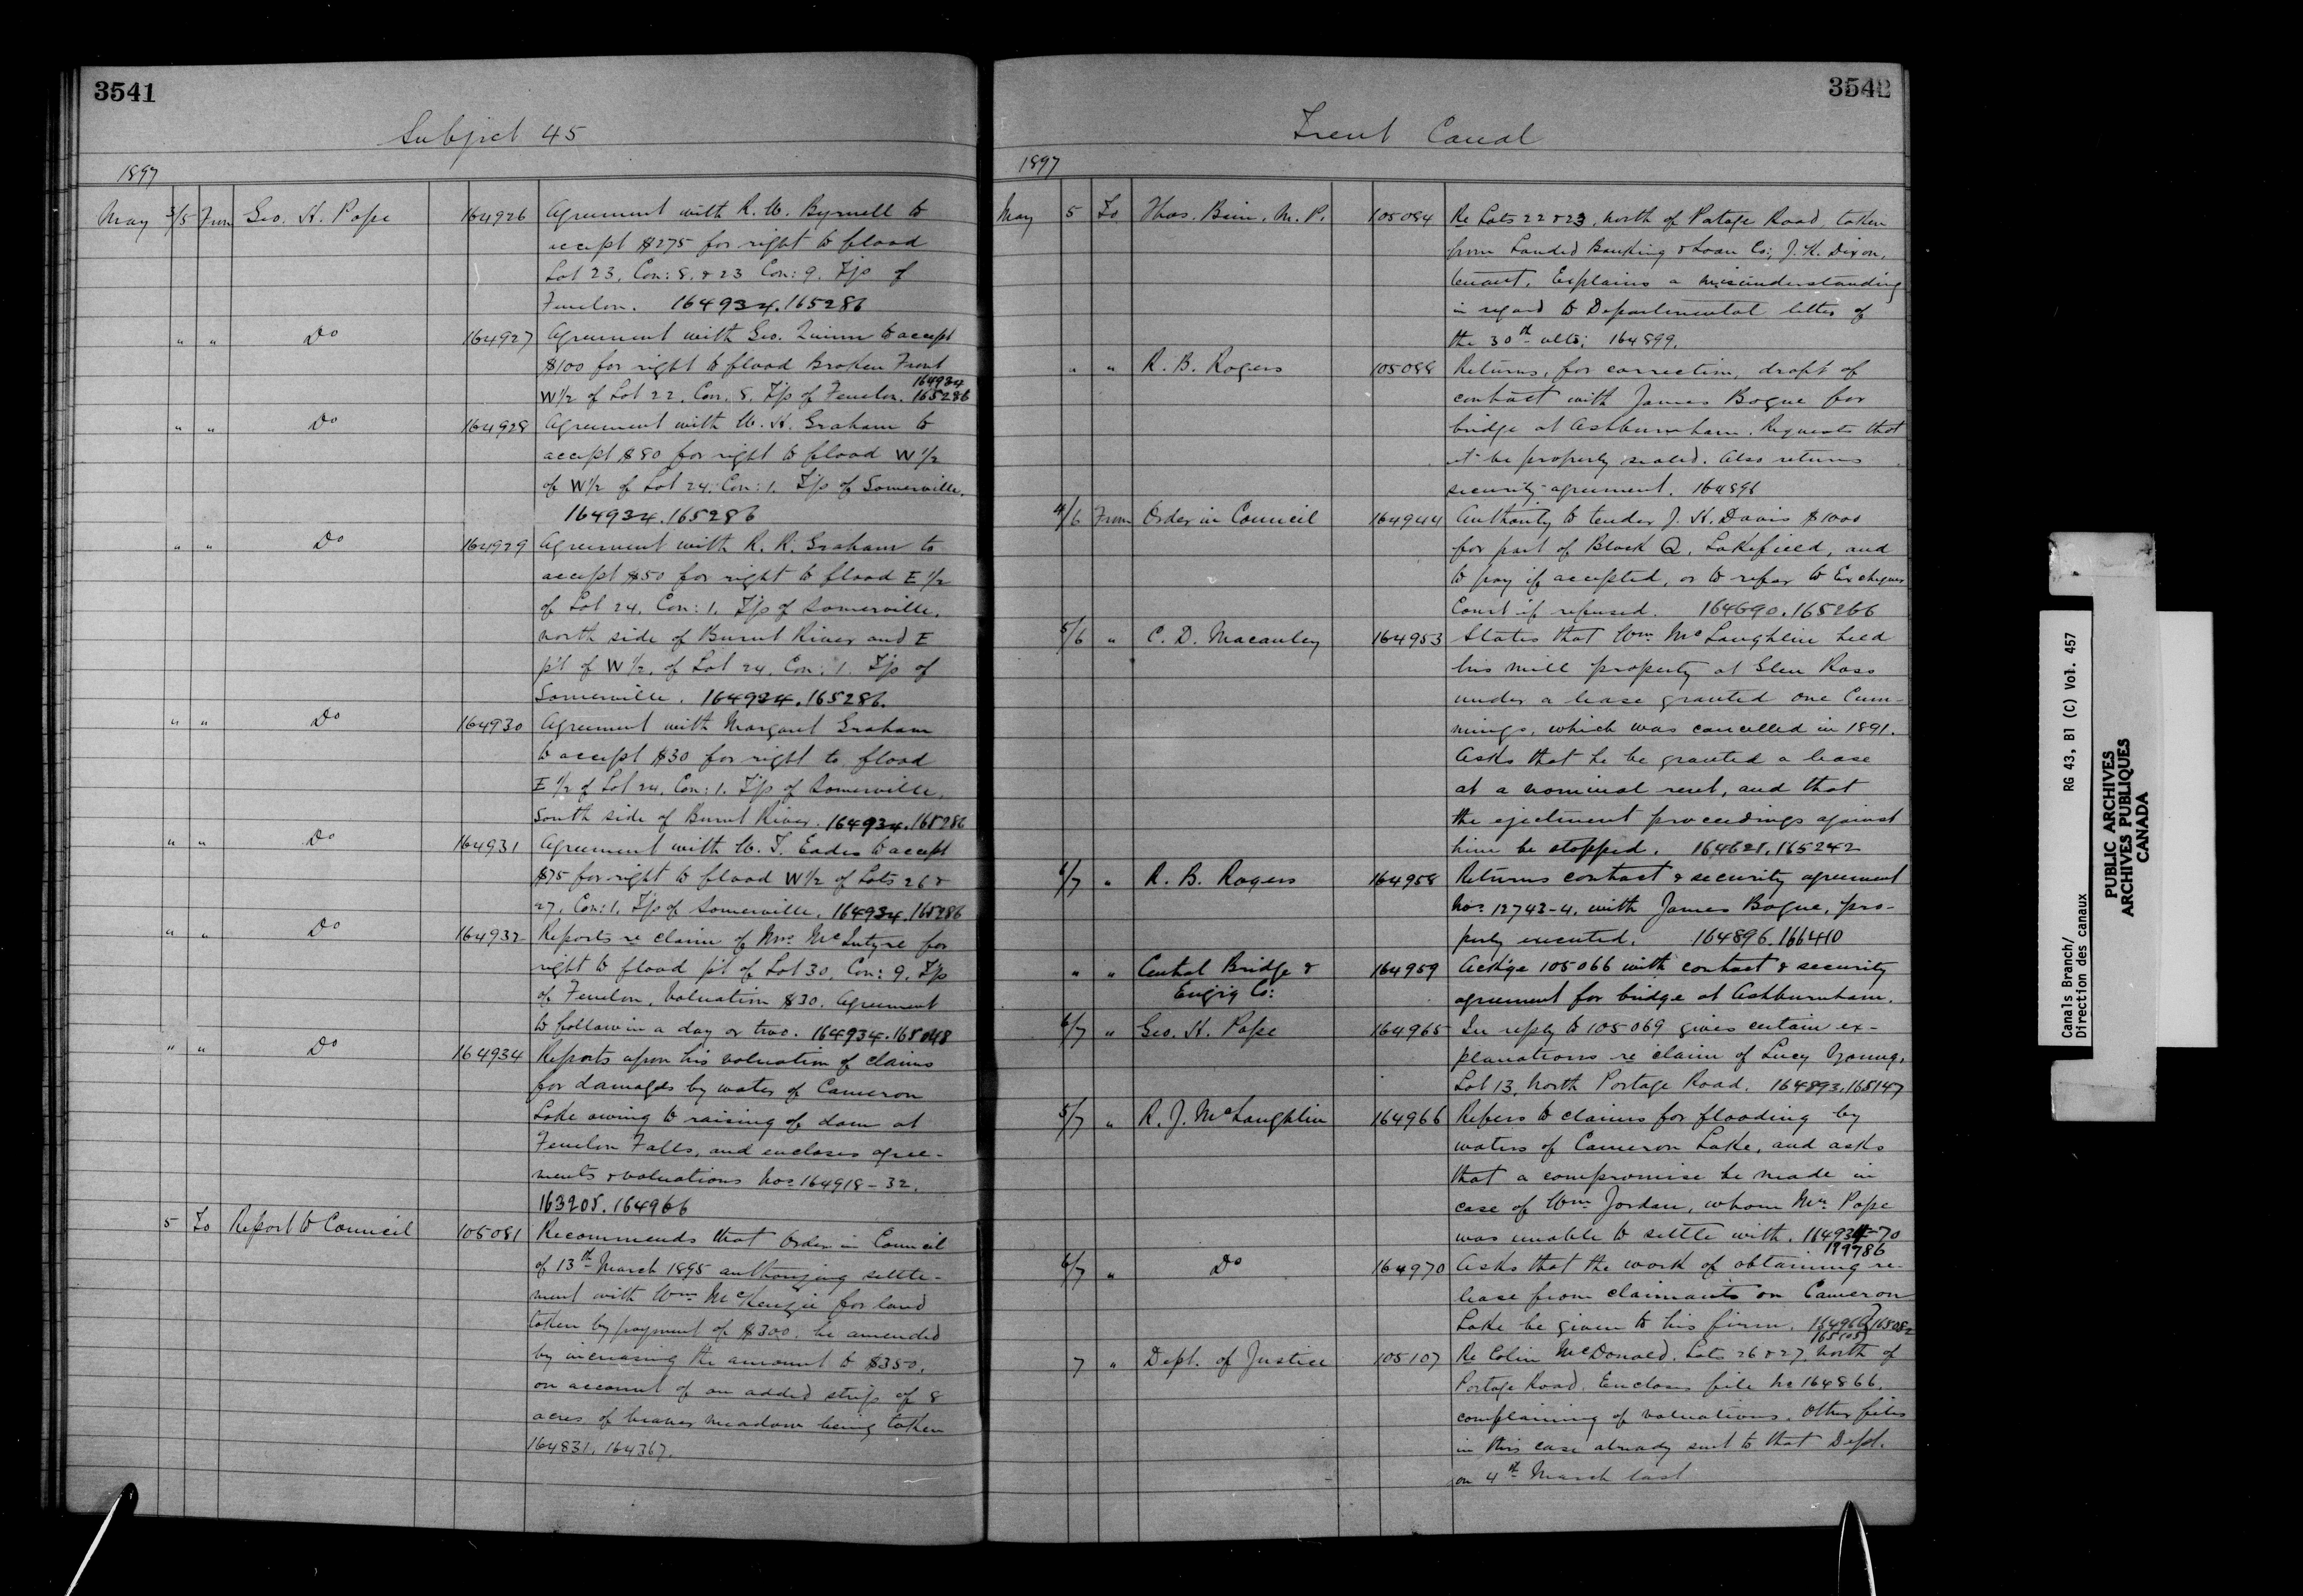 3541
Subject 45
1897
May 3/5 From Geo. H. Pope 164926 Agreement with R. W. Byrnell to
accept $275 for right to flood
Lot 23, Con: 8. & 23 Con: 9. T'p of
Fenelon. 164934.165286
" " Do 164927 Agreement with Geo. Quinn to accept
$100 for right to flood Broken Front
W 1/2 of Lot 22, Con. 8. T'p of Fenelon. 164934
165286
" " Do 164928 Agreement with W. H. Graham to
accept $80 for right to flood W 1/2
of W 1/2 of Lot 24. Con: 1. T'p of Somerville.
164934.165286
" " Do 164929 Agreement with R. R. Graham to
accept $50 for right to flood E 1/2
of Lot 24, Con: 1. T'p of Somerville,
north side of Burnt River and E
p't of W 1/2, of Lot 24, Con: 1. T'p of
Somerville. 164934.165286.
" " Do 164930 Agreement with Margaret Graham
to accept $30 for right to flood
E 1/2 of Lot 24, Con: 1. T'p of Somerville,
South side of Burnt River. 164934.165286
" " Do 164931 Agreement with W. T. Eades to accept
$75 for right to flood W 1/2 of Lots 26 &
27, Con: 1. T'p of Somerville. 164934.165286
" " Do 164932 Reports re claim of Mrs. McIntyre for
right to flood p't of Lot 30, Con: 9. T'p
of Fenelon. Valuation $30. Agreement
to follow in a day or two. 164934.165048
" " Do 164934 Reports upon his valuation of claims
for damages by water of Cameron
Lake owing to raising of dam at
Fenelon Falls, and encloses agree-
ments & valuations Nos 164918-32.
163205.164966
5 To Report to Council 105081 Recommends that Order in Council
of 13th March 1895 authorizing settle-
ment with Wm. McKenzie for land
taken by payment of $300, be amended
by increasing the amount to $350,
on account of an added strip of 8
acres of beaver meadow being taken
164831. 164367.
3542
Trent Canal
1897
May 5 To Thos. Bain, M.P. 105084 Re Lots 22 & 23, North of Portage Road, taken
from Landed Banking & Loan Co; J. H. Dixon,
tenant. Explains a misunderstanding
in regard to Departmental letter of
the 30th ulto; 164899.
" " R. B. Rogers 105088 Returns, for correction, draft of
contract with James Bogue for
bridge at Ashburnham. Requests that
it be properly sealed. Also returns
security agreement. 164896
4/6 From Order in Council 164944 Authority to tender J. H. Davis $1000
for part of Block Q, Lakefield, and
to pay if accepted, or to refer to Exchequer
Court if refused. 164690.165266
5/6 " C. D. Macauley 164953 States that Wm. McLaughlin held
his mill property at Glen Ross
under a lease granted one Cum-
mings, which was cancelled in 1891.
Asks that he be granted a lease
at a nominal rent, and that
the ejectment proceedings against
him be stopped. 164628.165242
6/7 " R. B. Rogers 164958 Returns contract & security agreement
Nos 12743-4, with James Bogue, pro-
perly executed. 164896.166410
" " Central Bridge & 164959 Ackge 105066 with contract & security
Eng'rg Co: agreement for bridge at Ashburnham.
6/7 " Geo. H. Pope 164965 In reply to 105069 gives certain ex-
planations re claim of Lucy Young,
Lot 13, North Portage Road. 164893.165147
5/7 " R. J. McLaughlin 164966 Refers to claims for flooding by
waters of Cameron Lake, and asks
that a compromise be made in
case of Wm. Jordan, whom Mr. Pope
was unable to settle with. 164934-70
199786
6/7 " Do 164970 Asks that the work of obtaining re-
lease from claimants on Cameron
Lake be given to his firm. 164966 165082
165105
7 " Dept. of Justice 105107 Re Colin McDonald. Lots 26 & 27, North of
Portage Road. Encloses file No 164866,
complaining of valuations. Other files
in this case already sent to that Dept.
on 4th March last
Canals Branch/ RG 43, B1 (C) Vol. 457
Direction des canaux
PUBLIC ARCHIVES
ARCHIVES PUBLIQUES
CANADA